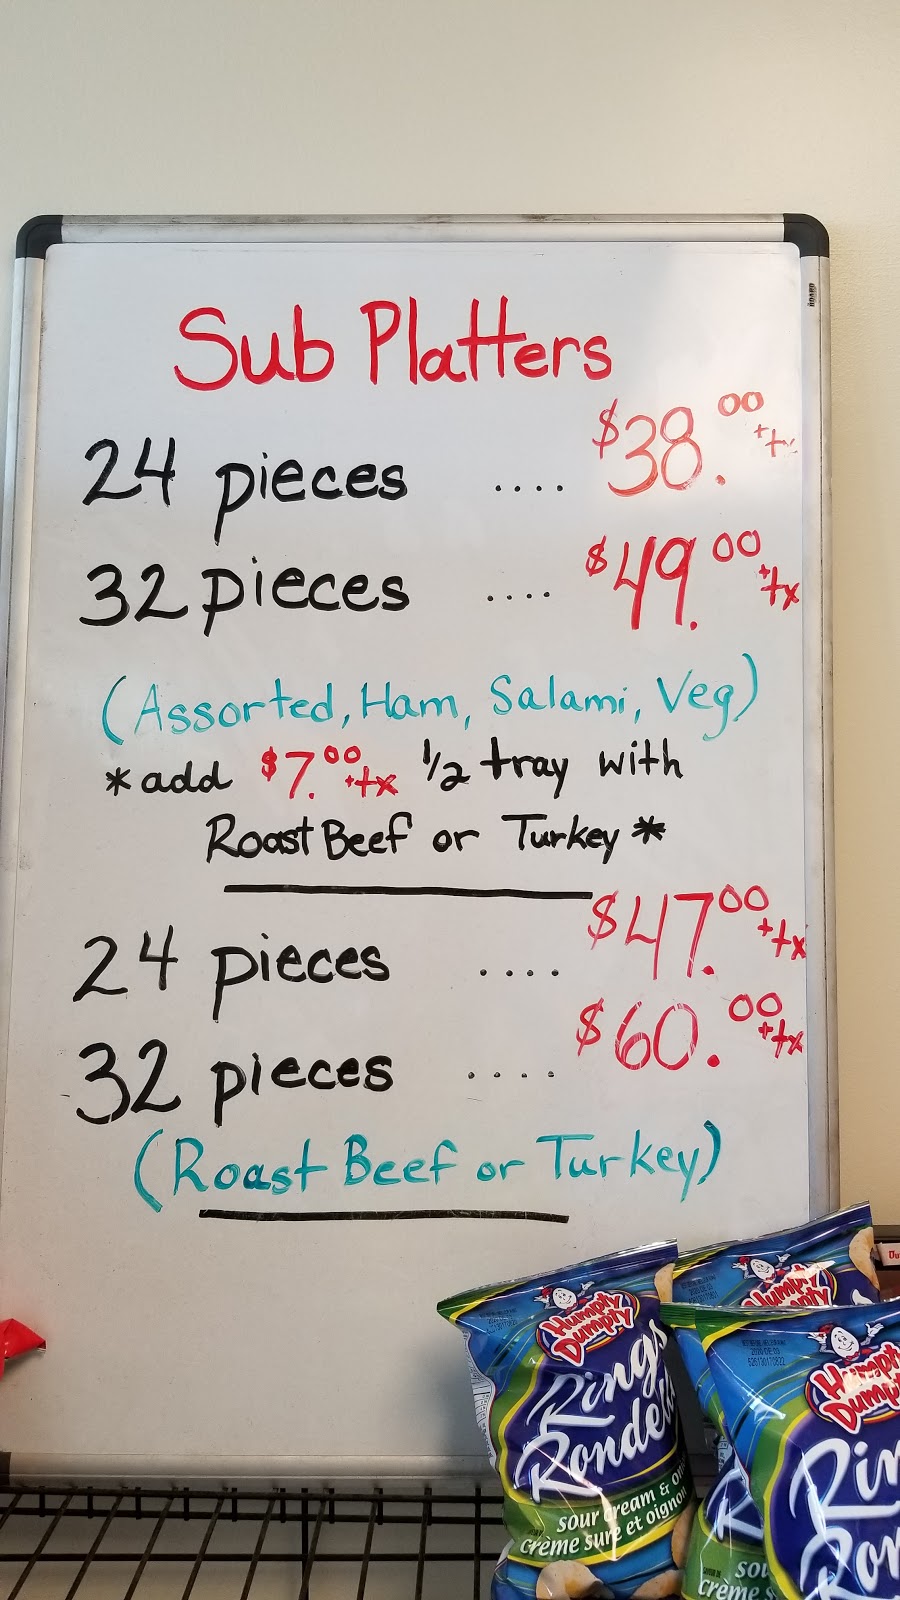 Sub Platters
24 pieces .... $38.00 +tx
32 pieces .... $49.00 +tx
(Assorted, Ham, Salami, Veg)
*add $7.00 +tx 1/2 tray with
Roast Beef or Turkey*
24 pieces .... $47.00 +tx
32 pieces .... $60.00 +tx
(Roast Beef or Turkey)
Humpty
Dumpty
Rings
Rondelles
sour cream & onion
crème sure et oignon
Humpty
Dumpty
Humpty
Dumpty